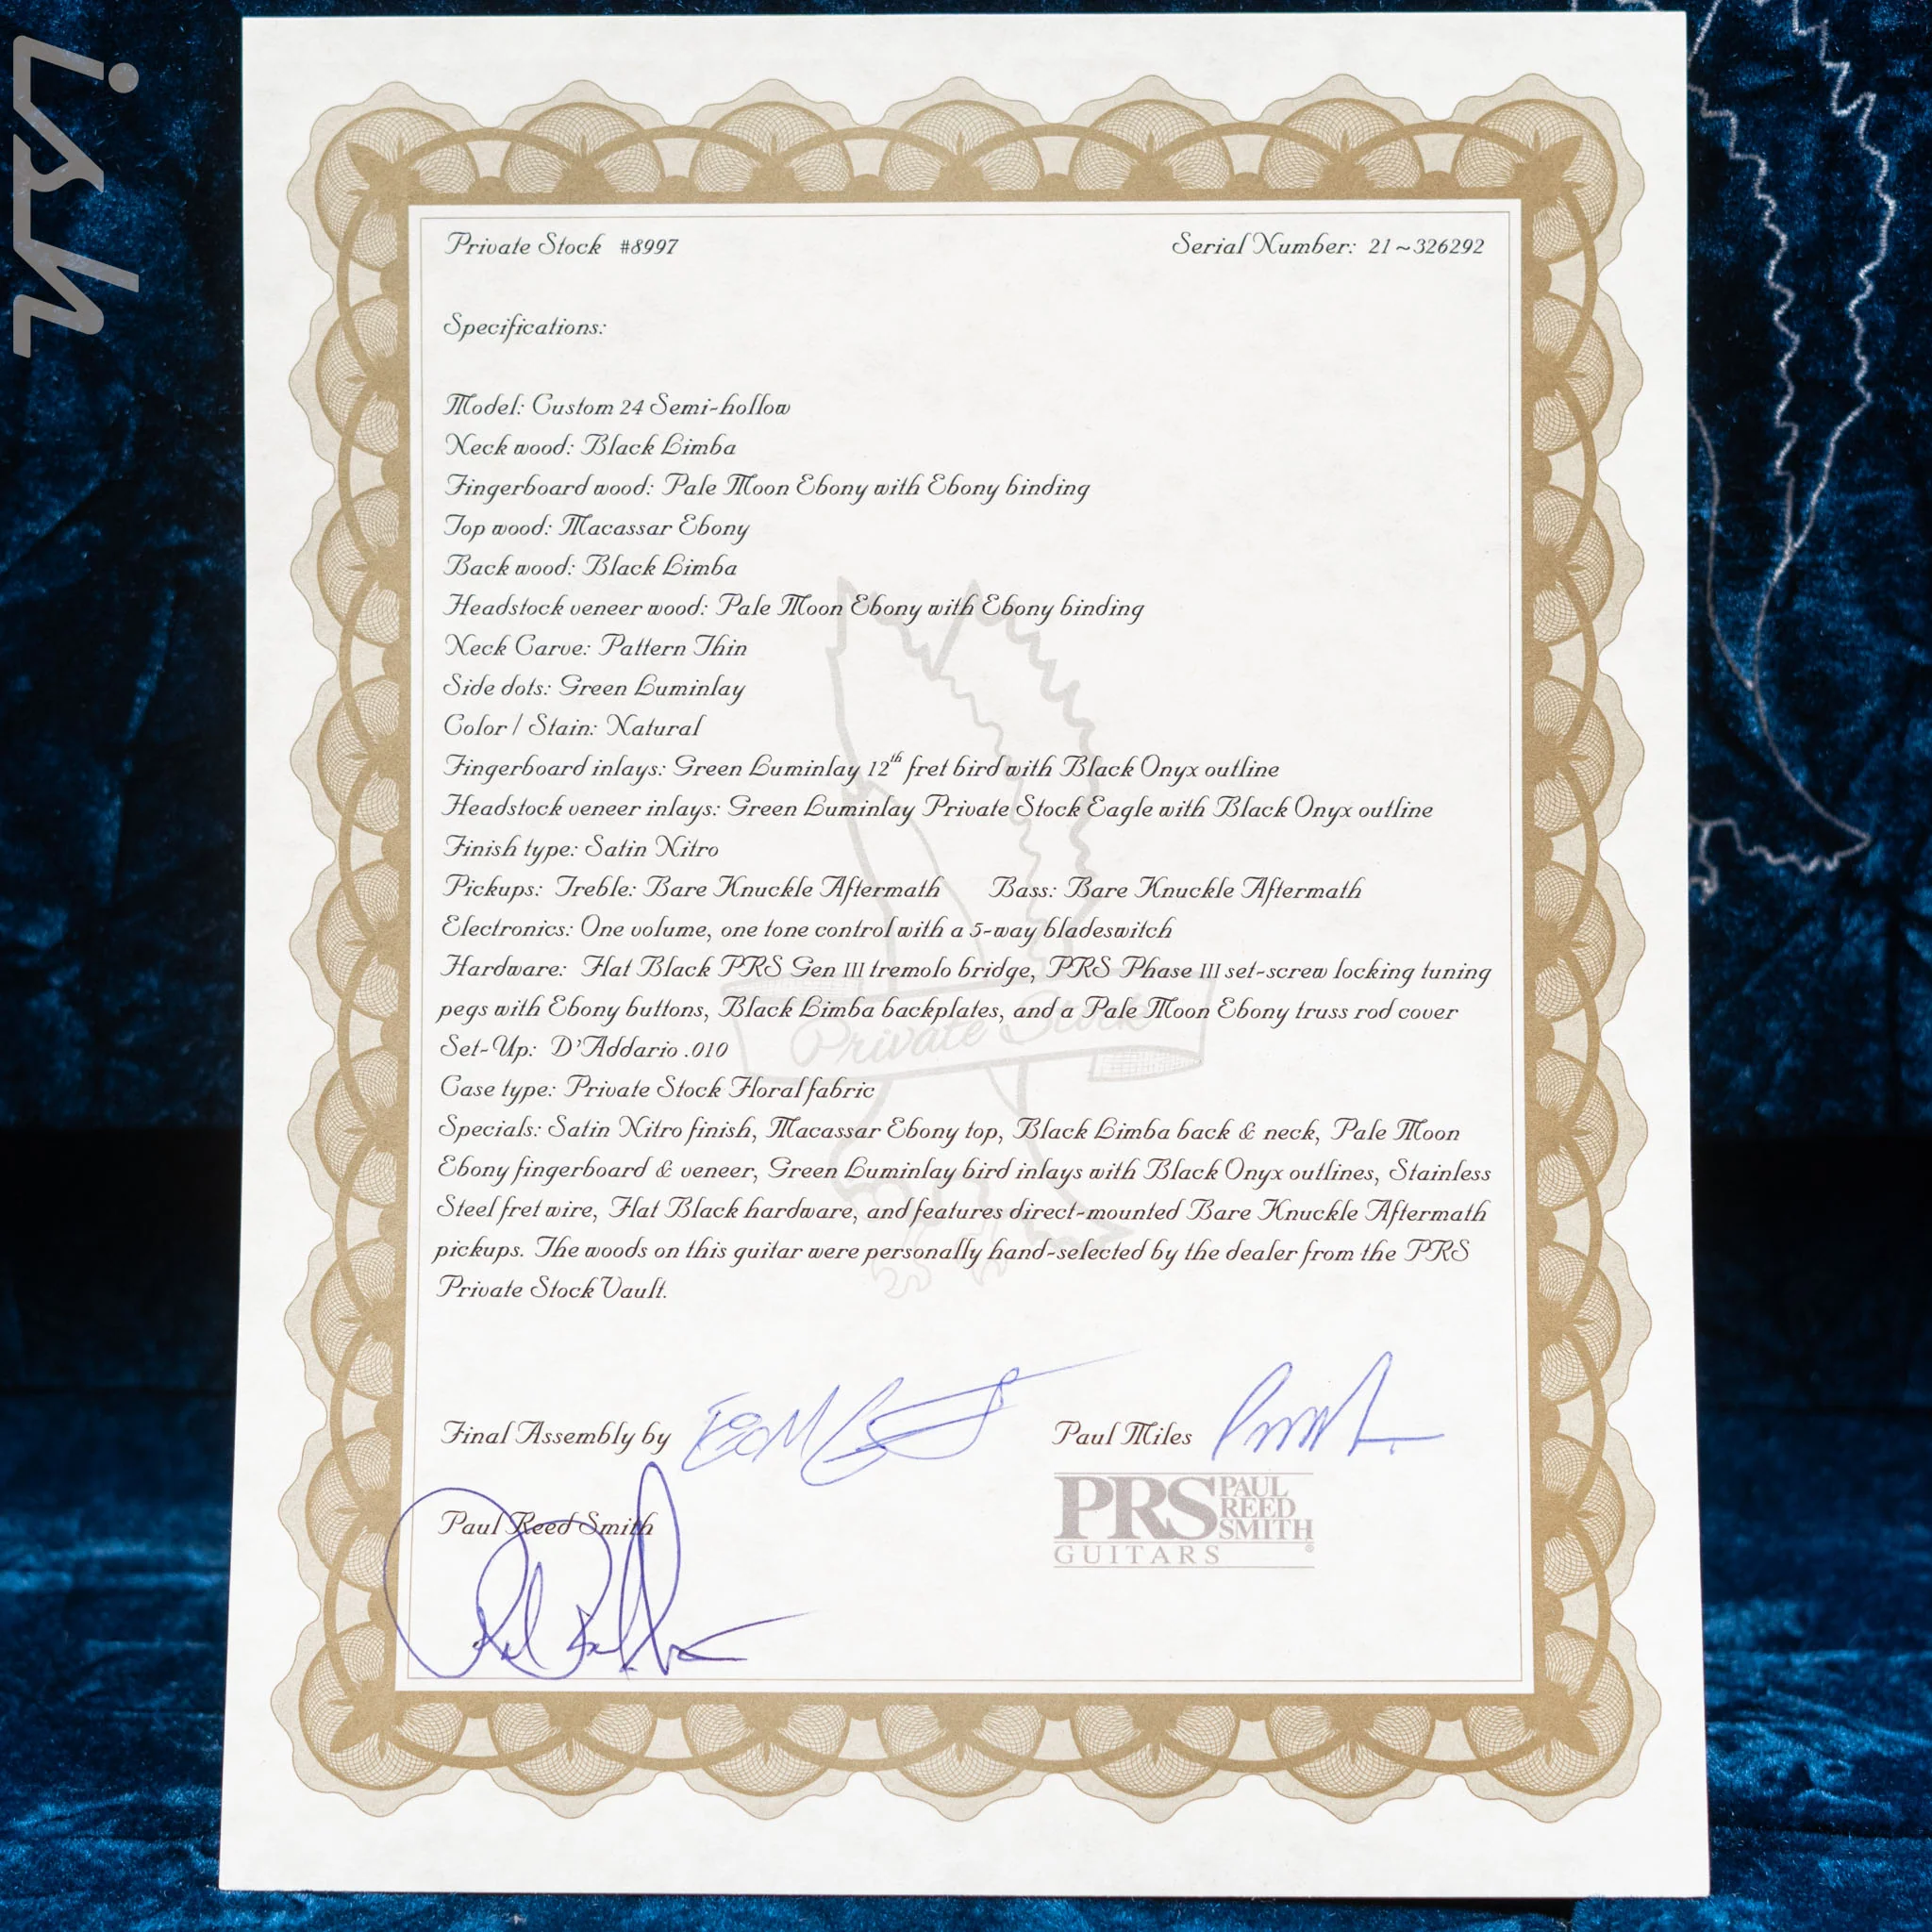 ish
Private Stock #8997
Serial Number: 21~326292
Specifications:
Model: Custom 24 Semi-hollow
Neck wood: Black Limba
Fingerboard wood: Pale Moon Ebony with Ebony binding
Top wood: Macassar Ebony
Back wood: Black Limba
Headstock veneer wood: Pale Moon Ebony with Ebony binding
Neck Carve: Pattern Thin
Side dots: Green Luminlay
Color / Stain: Natural
Fingerboard inlays: Green Luminlay 12th fret bird with Black Onyx outline
Headstock veneer inlays: Green Luminlay Private Stock Eagle with Black Onyx outline
Finish type: Satin Nitro
Pickups: Treble: Bare Knuckle Aftermath Bass: Bare Knuckle Aftermath
Electronics: One volume, one tone control with a 5-way bladeswitch
Hardware: Flat Black PRS Gen III tremolo bridge, PRS Phase III set-screw locking tuning
pegs with Ebony buttons, Black Limba backplates, and a Pale Moon Ebony truss rod cover
Private Stock
Set-Up: D'Addario .010
Case type: Private Stock Floral fabric
Specials: Satin Nitro finish, Macassar Ebony top, Black Limba back & neck, Pale Moon
Ebony fingerboard & veneer, Green Luminlay bird inlays with Black Onyx outlines, Stainless
Steel fret wire, Flat Black hardware, and features direct-mounted Bare Knuckle Aftermath
pickups. The woods on this guitar were personally hand-selected by the dealer from the PRS
Private Stock Vault.
Final Assembly by
Paul Miles
Paul Reed Smith
PRS PAUL
REED
SMITH
GUITARS